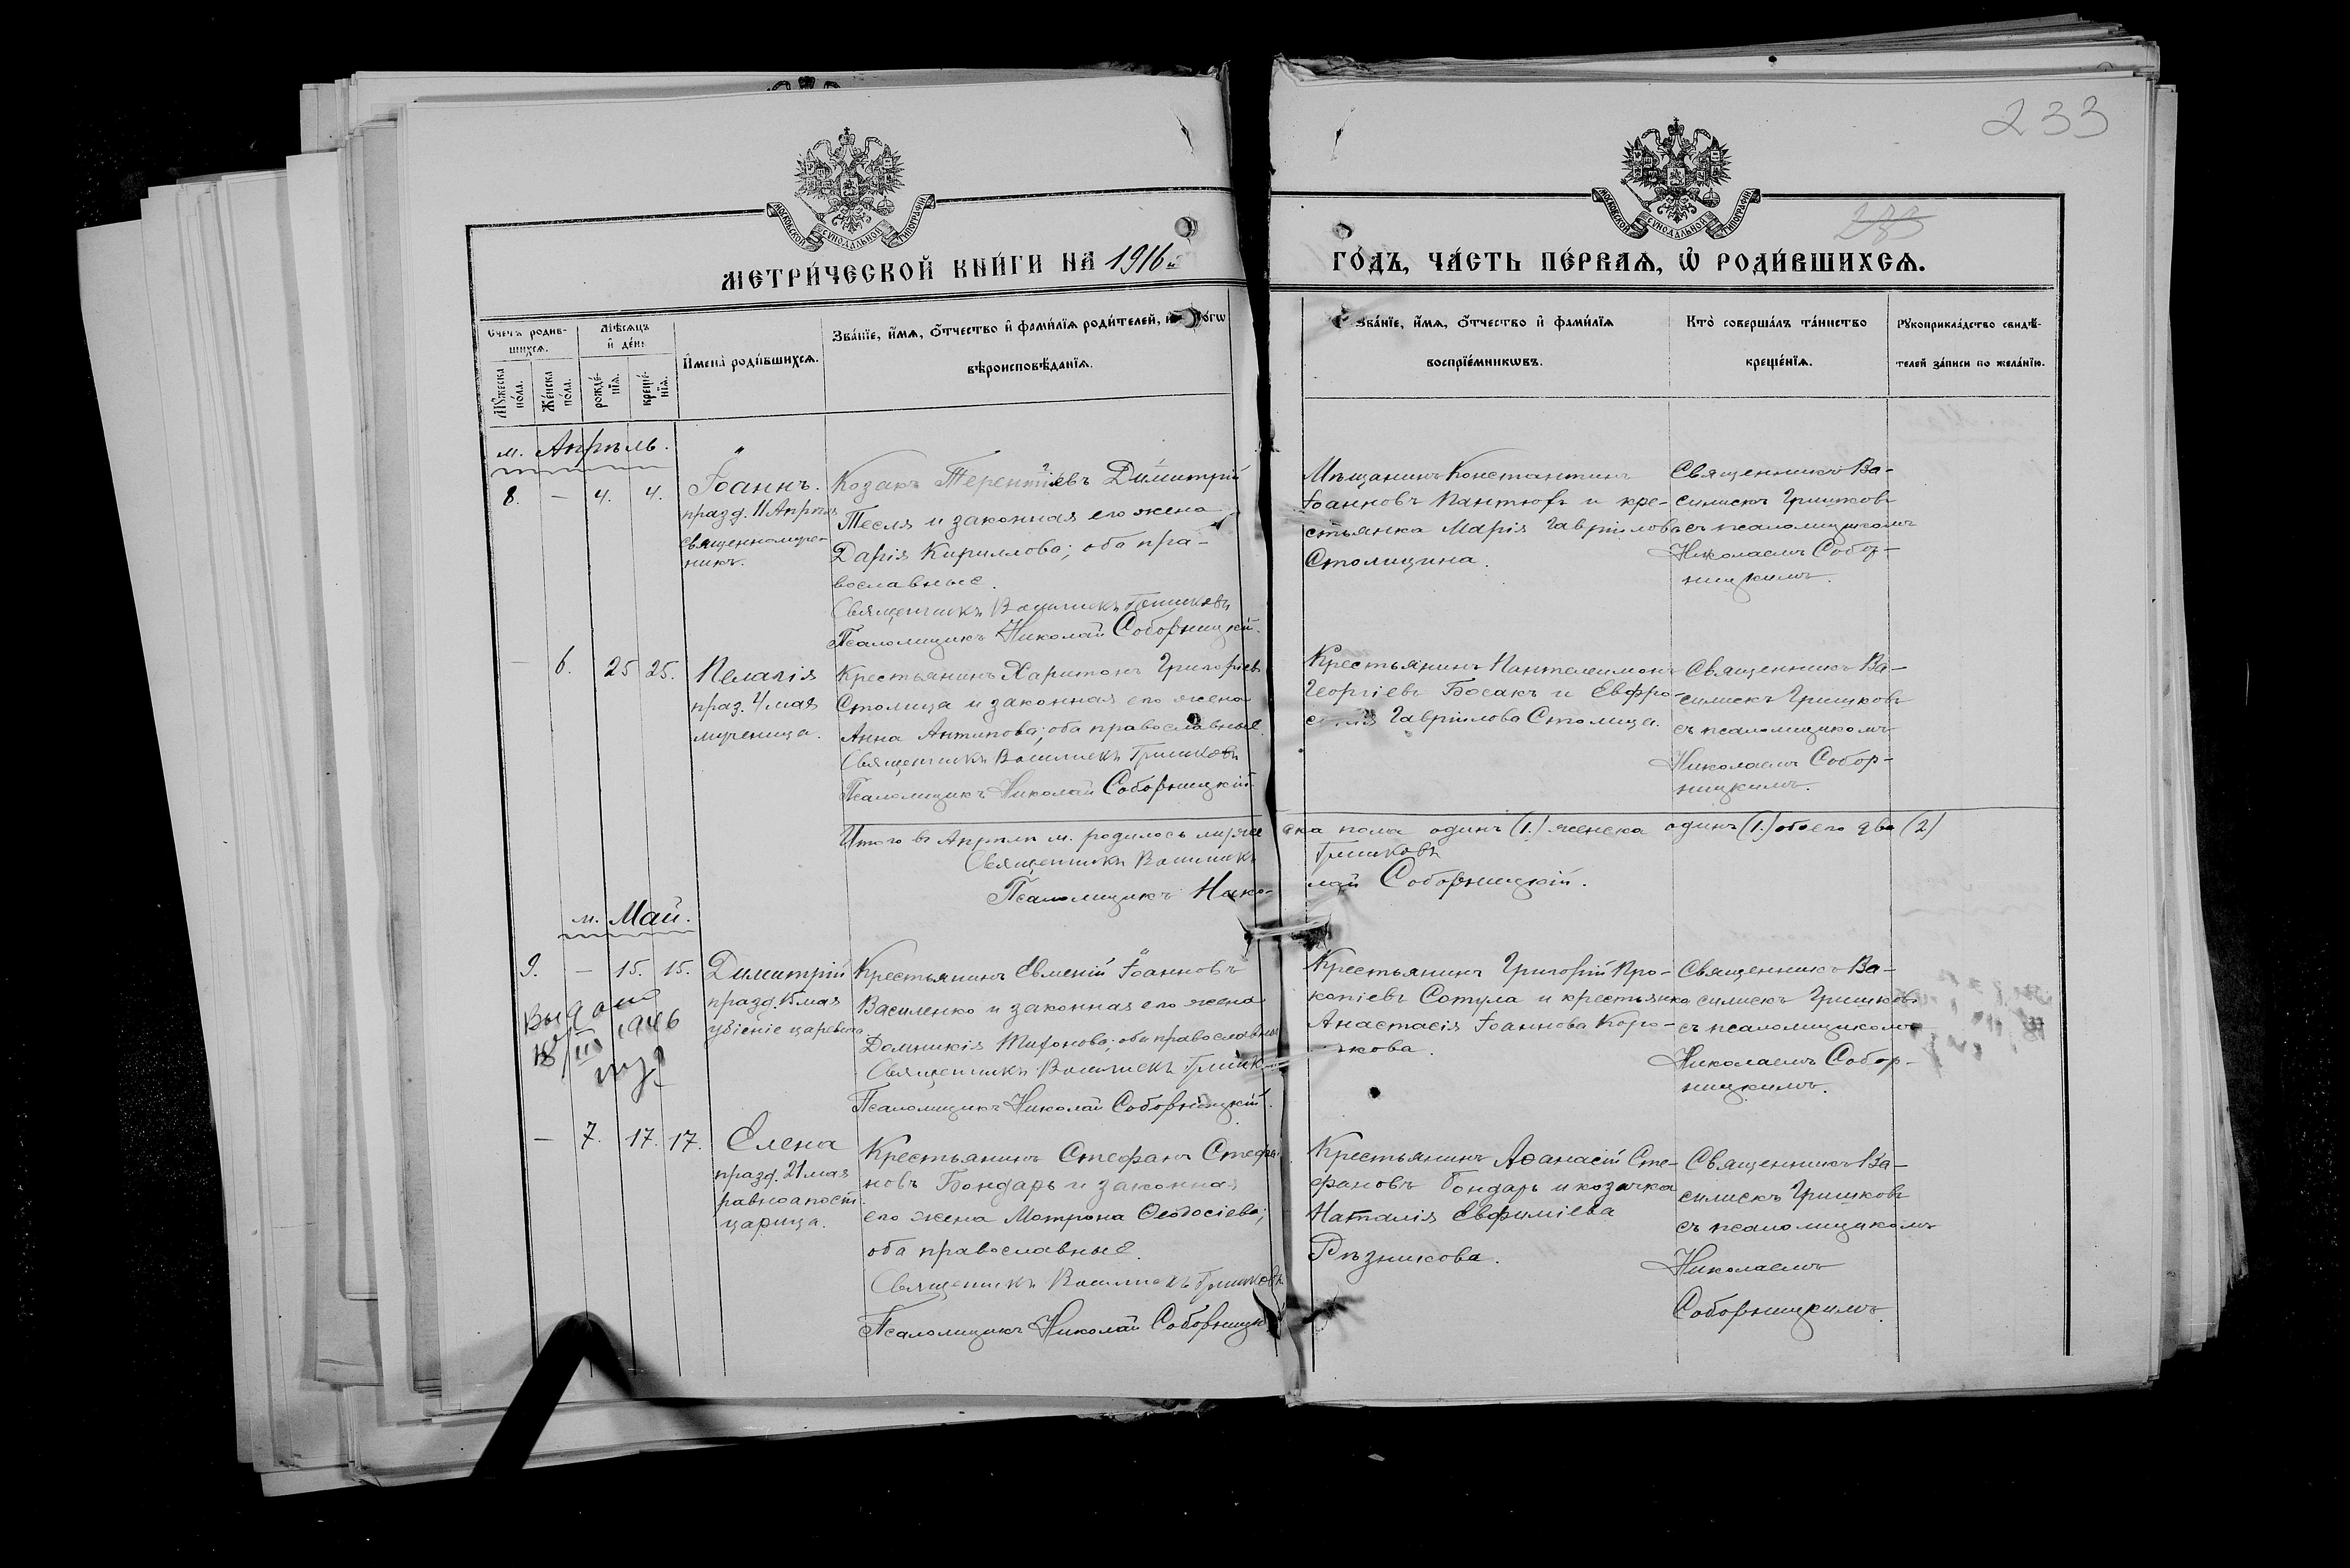 233
233
МОСКОВСКОЙ СѴНОДАЛЬНОЙ ТИПОГРАФІИ
МОСКОВСКОЙ СѴНОДАЛЬНОЙ ТИПОГРАФІИ
МЕТРИ́ЧЕСКОЙ КНИ́ГИ НА 1916й
ГО́ДЪ, ЧА́СТЬ ПЕ́РВАѦ, Ѡ҆ РОДИ́ВШИХСѦ.
Счетъ родив-
шихсѧ.
Мꙋжеска
по́ла.
Же́нска
по́ла.
Мѣ́сѧцъ
и҆ де́нь
рожде́-
нїѧ.
креще́-
нїѧ.
И҆мена̀ роди́вшихсѧ.
Зва́нїе, и҆́мѧ, ѻ҆́тчество и҆ фами́лїѧ роди́телей, и҆
вѣроисповѣ́данїѧ.
Зва́нїе, и҆́мѧ, ѻ҆́тчество и҆ фами́лїѧ
воспрїе́мникѡвъ.
Кто̀ соверша́лъ та́инство
креще́нїѧ.
Рꙋкоприкла́дство свидѣ́-
телей за́писи по жела́нїю.
м. Апрѣль.
8. — 4. 4.
Іоаннъ.
празд. 11 Апрѣля
священномуче-
никъ.
Козакъ Терентіевъ Димитрій
Тесля и законная его жена
Дарія Кириллова; оба пра-
вославные.
Священникъ Василискъ Гришковъ
Псаломщикъ Николай Соборницкій.
Мѣщанинъ Константинъ
Іоанновъ Пантюх и кре-
стьянка Марія Гаврiилова
Столицина.
Священникъ Ва-
силискъ Гришковъ
съ псаломщикомъ
Николаемъ Собор-
ницкимъ.
— 6. 25 25.
Пелагія
праз. 4 мая
мученица.
Крестьянинъ Харитонъ Григорьевъ
Столица и законная его жена
Анна Антипова; оба православные.
Священникъ Василискъ Гришковъ
Псаломщикъ Николай Соборницкій
Крестьянинъ Пантелеимонъ
Георгіевъ Босакъ и Евфро-
Гавріилова Столица.
Священникъ Ва-
силискъ Гришковъ
съ псаломщикомъ
Николаемъ Собор-
ницкимъ.
Итого въ Апрѣлѣ м. родилось мужеска пола одинъ (1.) женска одинъ (1.) обоего два (2)
Священникъ Василискъ Гришковъ
Псаломщикъ Николай Соборницкій.
м. Май.
9. — 15. 15.
Выдано
18/III 1946
Димитрій
празд. 15 мая
убіеніе царевича
Крестьянинъ Евменій Іоанновъ
Василенко и законная его жена
Домникія Тихонова; оба православные
Священникъ Василискъ Гришк
Псаломщикъ Николай Соборницкій.
Крестьянинъ Григорій Про-
копіевъ Сотула и крестьянка
Анастасія Іоаннова Коро-
чкова.
Священникъ Ва-
силискъ Гришковъ
съ псаломщикомъ
Николаемъ Собор-
ницкимъ.
— 7. 17. 17.
Елена
празд. 21 мая
равноапост.
царица.
Крестьянинъ Стефанъ Стефа-
новъ Бондарь и законная
его жена Матрона Ѳеодосіева;
оба православные.
Священникъ Василискъ Гришковъ
Псаломщикъ Николай Соборницк
Крестьянинъ Аѳанасій Сте-
фановъ Бондарь и козачка
Наталія Евфиміева
Рѣзникова.
Священникъ Ва-
силискъ Гришковъ
съ псаломщикомъ
Николаемъ
Соборницкимъ.